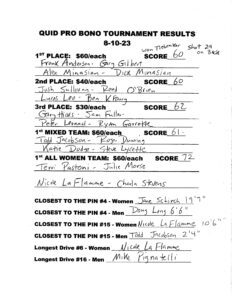 QUID PRO BONO TOURNAMENT RESULTS
8-10-23
won tiebreaker shot 29 on Back
1ST PLACE: $60/each SCORE 60
Frank Anderson - Gary Gilbert
Alex Minasian - Dick Minasian
2nd PLACE: $40/each SCORE 60
Josh Sullivan - Reed O'Brien
Lucas Leo - Ben
3rd PLACE: $30/each SCORE 62
Sam Fuller
Peter - Ryan
1ST MIXED TEAM: $60/each SCORE 61
Todd Jacobson - Kugo Dunning
Katie Dodge - Steve
1ST ALL WOMEN TEAM: $60/each SCORE 72
Terri Pastoni - Julie Morse
Nicole LaFlamme - Stevens
CLOSEST TO THE PIN #4 - Women Jane 19'7"
CLOSEST TO THE PIN #4 - Men Doug Long 6'6"
CLOSEST TO THE PIN #15 - Women Nicole LaFlamme 10'6"
CLOSEST TO THE PIN #15 - Men Todd Jacobson 2'4"
Longest Drive #6 - Women Nicole LaFlamme
Longest Drive #16 - Men Mike Pignatelli